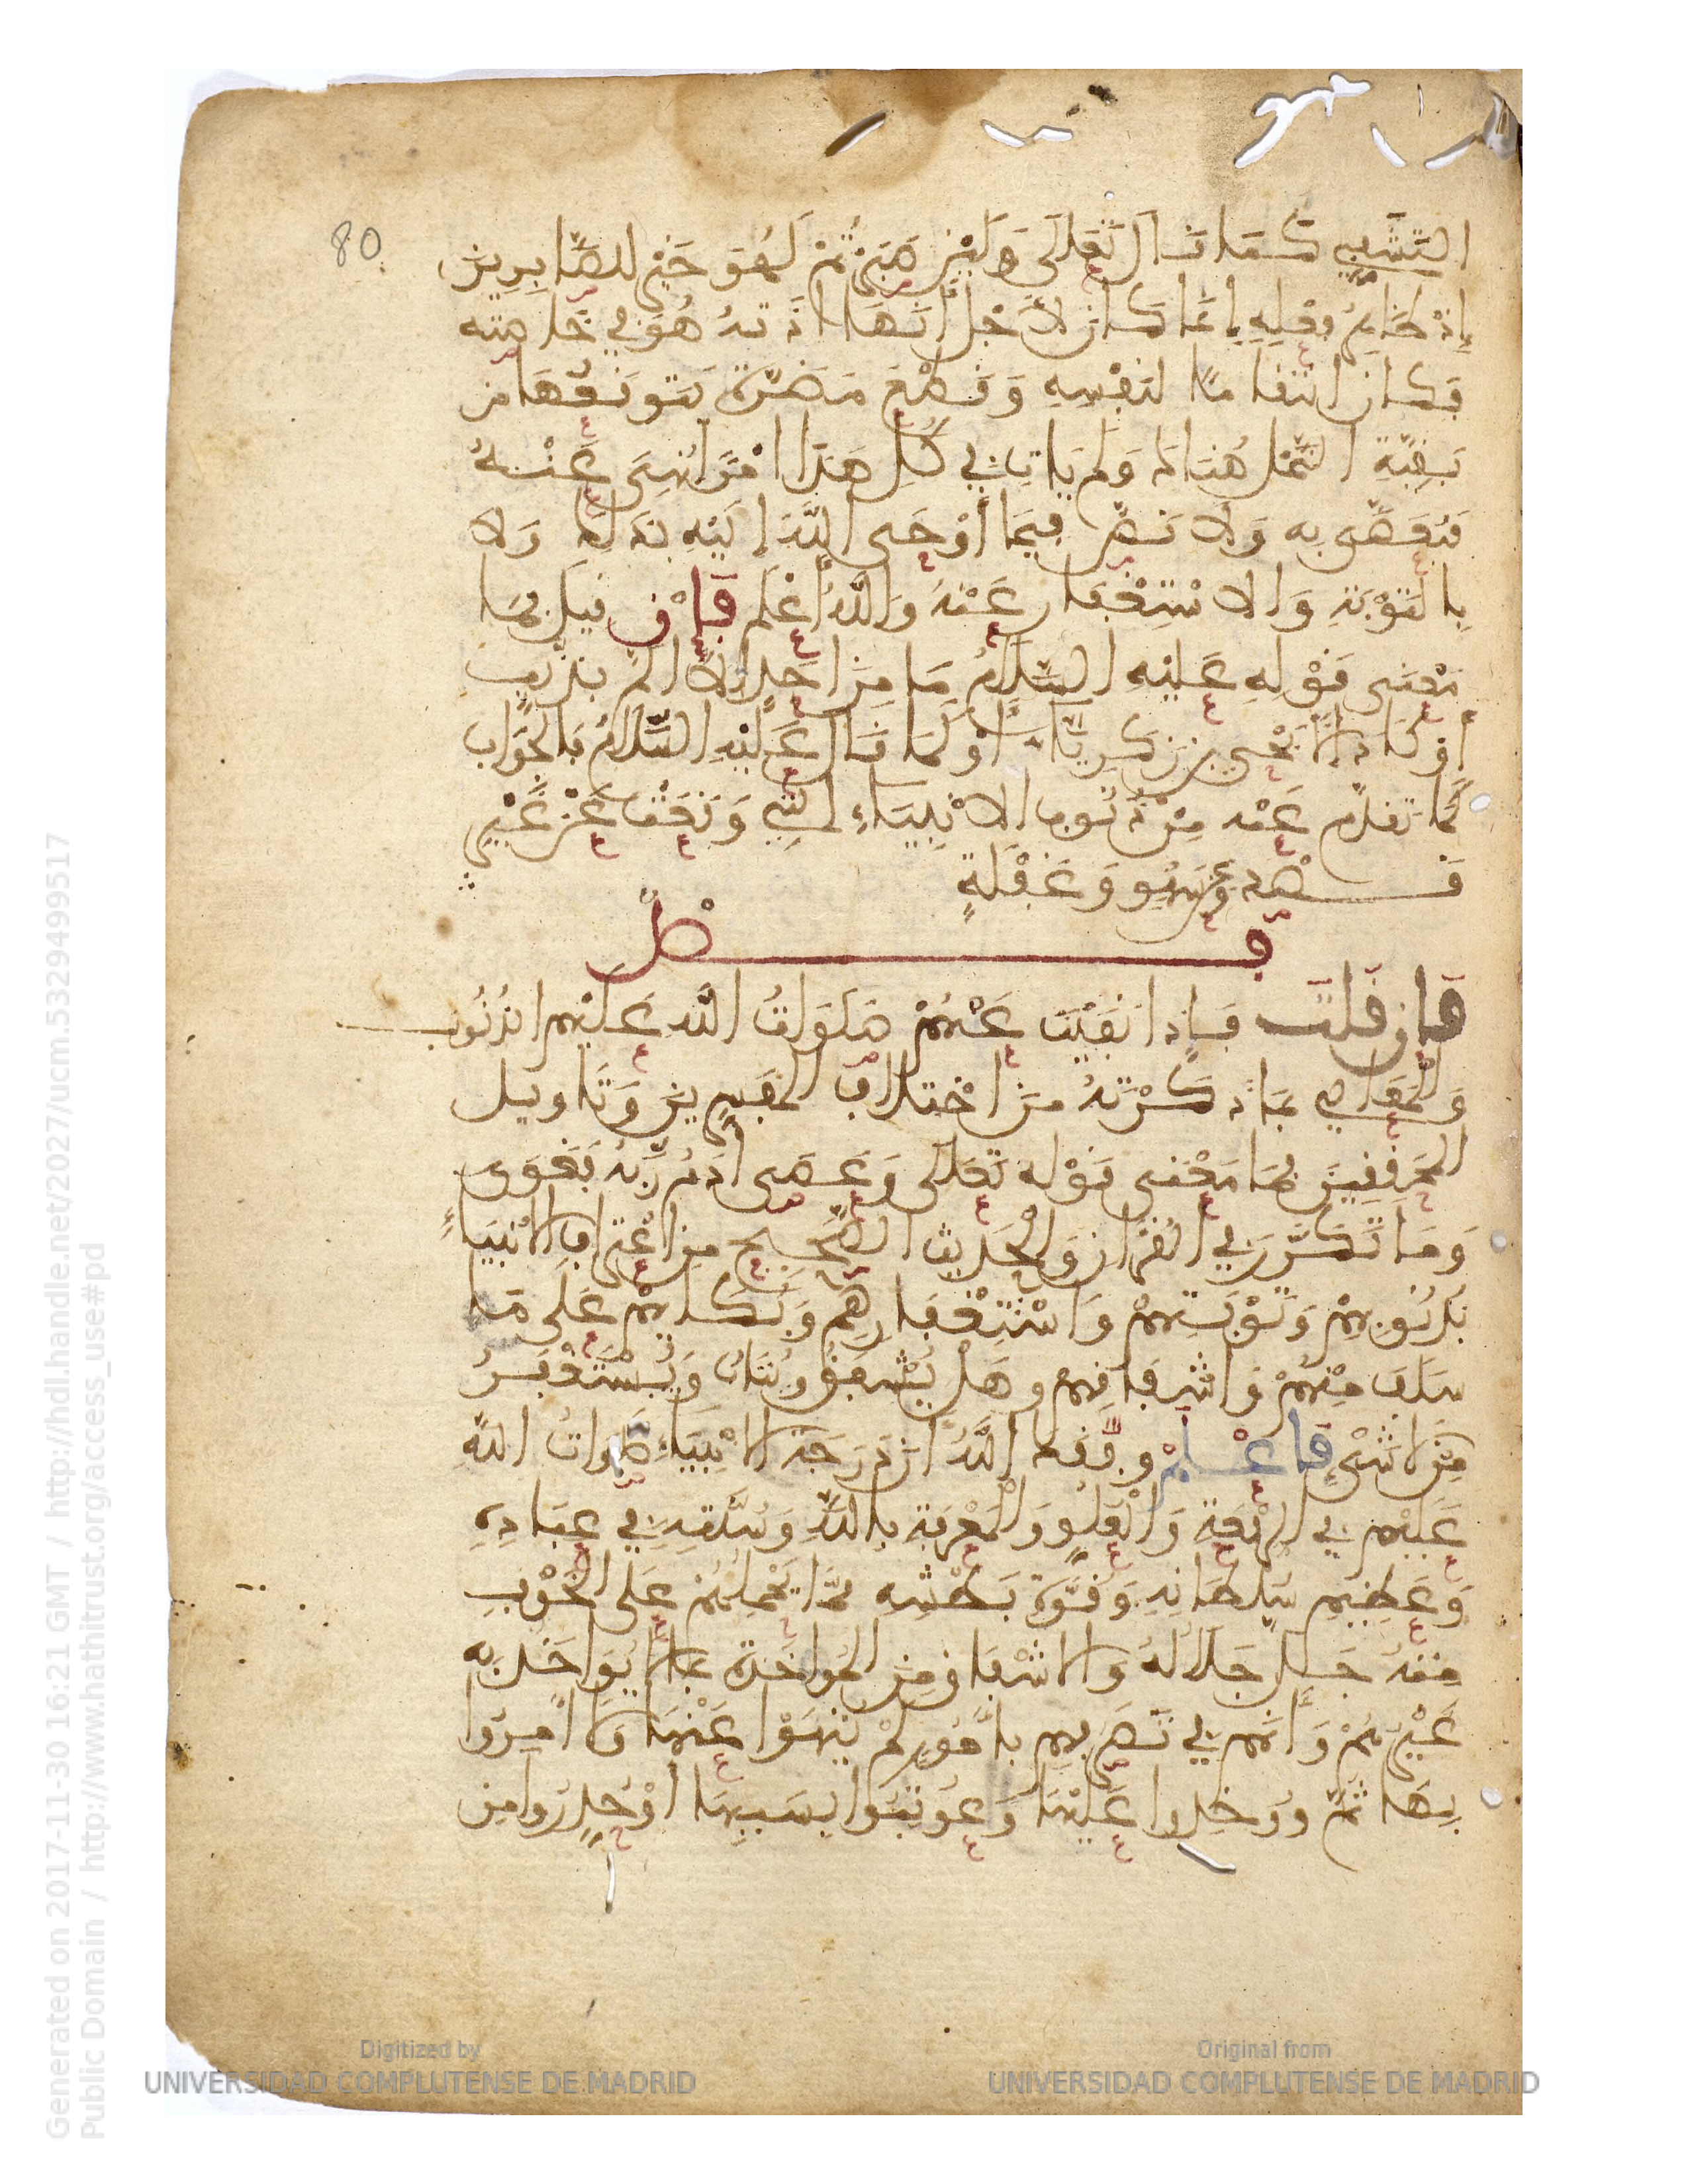 80
التشفي كما قال تعالى ولئن صبرتم لهو خير للصابرين
إذ ظاهر فعله إنما كان لأجل أنها آذته هو في خاصته
فكان انتقاما لنفسه وقطع مضرة يتوقعها من
بقية النمل هناك ولم يأت في كل هذا أمرا نهي عنه
فيعصى به ولا نص فيما أوحى الله إليه بذلك ولا
بالتوبة والاستغفار عنه والله أعلم فإن قيل فما
معنى قوله عليه السلام ما من أحد إلا ألم بذنب
أو كاد إلا يحيى بن زكرياء أو كما قال عليه السلام فالجواب
كما تقدم عنه من ذنوب الانبياء التي وقعت عن غير
قصد وعن سهو وغفلة
فصل
فإن قلت فإذا نفيت عنهم صلوات الله عليهم الذنوب
والمعاصي بما ذكرته من اختلاف المفسرين وتاويل
المحققين فما معنى قوله تعالى وعصى آدم ربه فغوى
وما تكرر في القرءان والحديث الصحيح من اعتراف الانبياء
بذنوبهم وتوبتهم واستغفارهم وبكايهم على ما
سلف منهم واشفاقهم وهل يشفق ويتاب ويستغفر
من لا شيء فاعلم وفقك الله أن درجة الانبياء صلوات الله
عليهم في الرفعة والعلو والمعرفة بالله وسنته في عباده
وعظيم سلطانه وقوة بطشه مما يحملهم على الخوف
منه جل جلاله والاشفاق من المواخذة بما لا يواخذ به
غيرهم وأنهم في تصرفهم بأمور لم ينهوا عنها ولا أمروا
بها ثم ووخذوا عليها وعوتبوا بسببها أو حذروا من
Generated on 2017-11-30 16:21 GMT / http://hdl.handle.net/2027/ucm.5329499517
Public Domain / http://www.hathitrust.org/access_use#pd
Digitized by
UNIVERSIDAD COMPLUTENSE DE MADRID
Original from
UNIVERSIDAD COMPLUTENSE DE MADRID